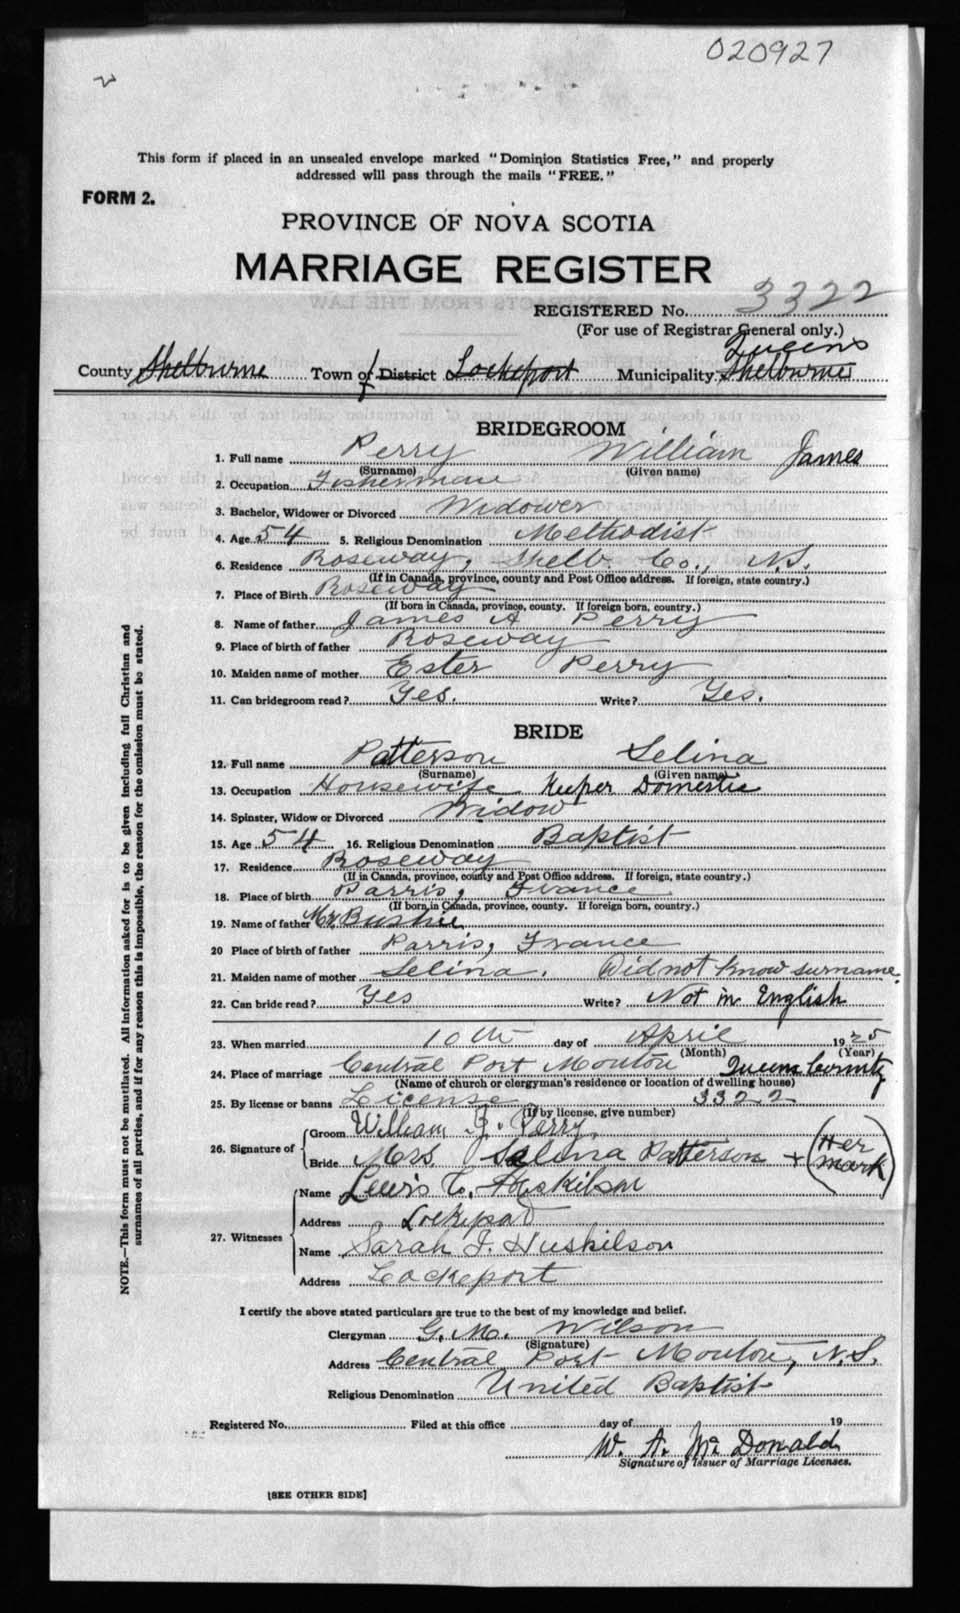 020927
This form if placed in an unsealed envelope marked "Dominion Statistics Free," and properly
addressed will pass through the mails "FREE."
FORM 2.
PROVINCE OF NOVA SCOTIA
MARRIAGE REGISTER
REGISTERED No. 3322
(For use of Registrar General only.)
Queens
County Shelburne Town of District Lockeport Municipality Shelburne
BRIDEGROOM
1. Full name Perry William James
(Surname) (Given name)
2. Occupation Fisherman
3. Bachelor, Widower or Divorced Widower
4. Age 54 5. Religious Denomination Methodist
6. Residence Roseway, Shelb. Co., N.S.
(If in Canada, province, county and Post Office address. If foreign, state country.)
7. Place of Birth Roseway
(If born in Canada, province, county. If foreign born, country.)
8. Name of father James A Perry
9. Place of birth of father Roseway
10. Maiden name of mother Ester Perry
11. Can bridegroom read? Yes. Write? Yes.
BRIDE
12. Full name Patterson Selina
(Surname) (Given name)
13. Occupation Housewife Keeper Domestic
14. Spinster, Widow or Divorced Widow
15. Age 54 16. Religious Denomination Baptist
17. Residence Roseway
(If in Canada, province, county and Post Office address. If foreign, state country.)
18. Place of birth Parris, France
(If born in Canada, province, county. If foreign born, country.)
19. Name of father Mr. Bushie
20 Place of birth of father Parris, France
21. Maiden name of mother Selina. Did not know surname.
22. Can bride read? Yes Write? Not in English
23. When married 10th day of April 1925
(Month) (Year)
24. Place of marriage Central Port Mouton Queens County
(Name of church or clergyman's residence or location of dwelling house)
25. By license or banns License 3322
(If by license, give number)
26. Signature of Groom William J. Perry
Bride Mrs Selina Patterson + (Her mark)
27. Witnesses Name Lewis C. Huskilson
Address Lockeport
Name Sarah J. Huskilson
Address Lockeport
I certify the above stated particulars are true to the best of my knowledge and belief.
Clergyman G. M. Wilson
(Signature)
Address Central Port Mouton, N.S.
Religious Denomination United Baptist
Registered No. Filed at this office day of 19
W. A. McDonald
Signature of Issuer of Marriage Licenses.
[SEE OTHER SIDE]
NOTE.—This form must not be mutilated. All information asked for is to be given including full Christian and
surnames of all parties, and if for any reason this is impossible, the reason for the omission must be stated.